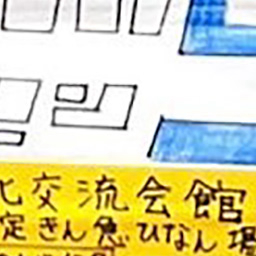 化交流会館
定きん急ひなん場